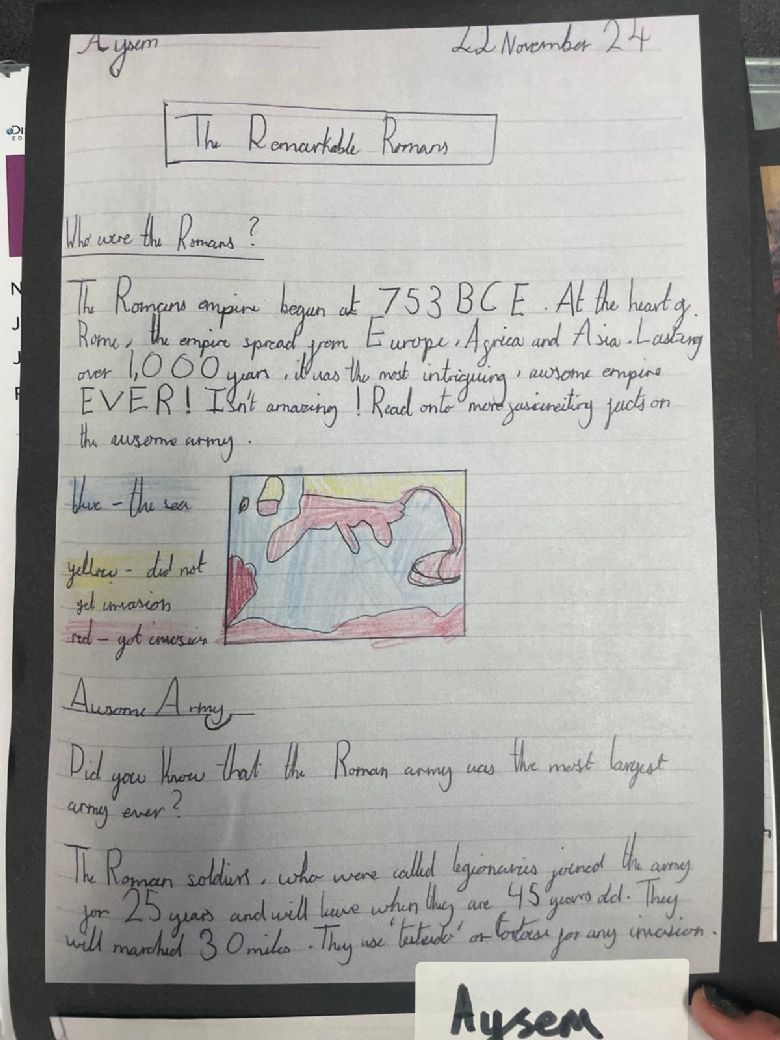 Aysem
22 November 24
The Remarkable Romans
Who were the Romans?
The Romans empire began at 753 BCE. At the heart of
Rome, the empire spread from Europe, Africa and Asia. Lasting
over 1,000 years, it was the most intriguing, awsome empire
EVER! Isn't amazing! Read onto more fascineiting facts on
the awsome army.
blue - the sea
yellow - did not
get invasion
red - got invasion
Awsome Army
Did you know that the Roman army was the most largest
army ever?
The Roman soldiers, who were called legionaries joined the army
for 25 years and will leave when they are 45 years old. They
will marched 30 miles. They use 'testudo' or tortoise for any invasion.
Aysem